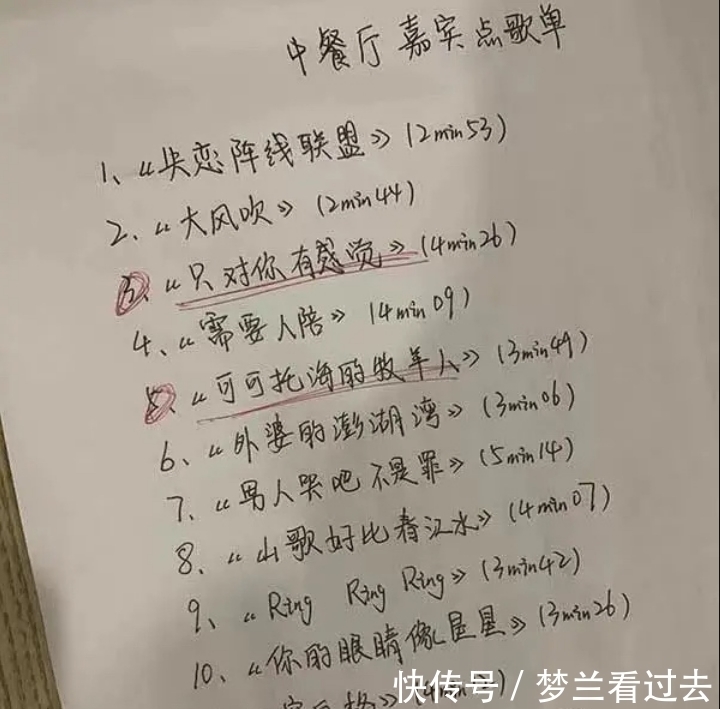 中餐厅 嘉宾点歌单
1、《失恋阵线联盟》(2min53)
2、《大风吹》(2min44)
3、《只对你有感觉》(4min26)
4、《需要人陪》(4min09)
5、《可可托海的牧羊人》(3min49)
6、《外婆的澎湖湾》(3min06)
7、《男人哭吧不是罪》(5min14)
8、《山歌好比春江水》(4min07)
9、《Ring Ring Ring》(3min42)
10、《你的眼睛像星星》(3min26)
快传号 / 梦兰看过去